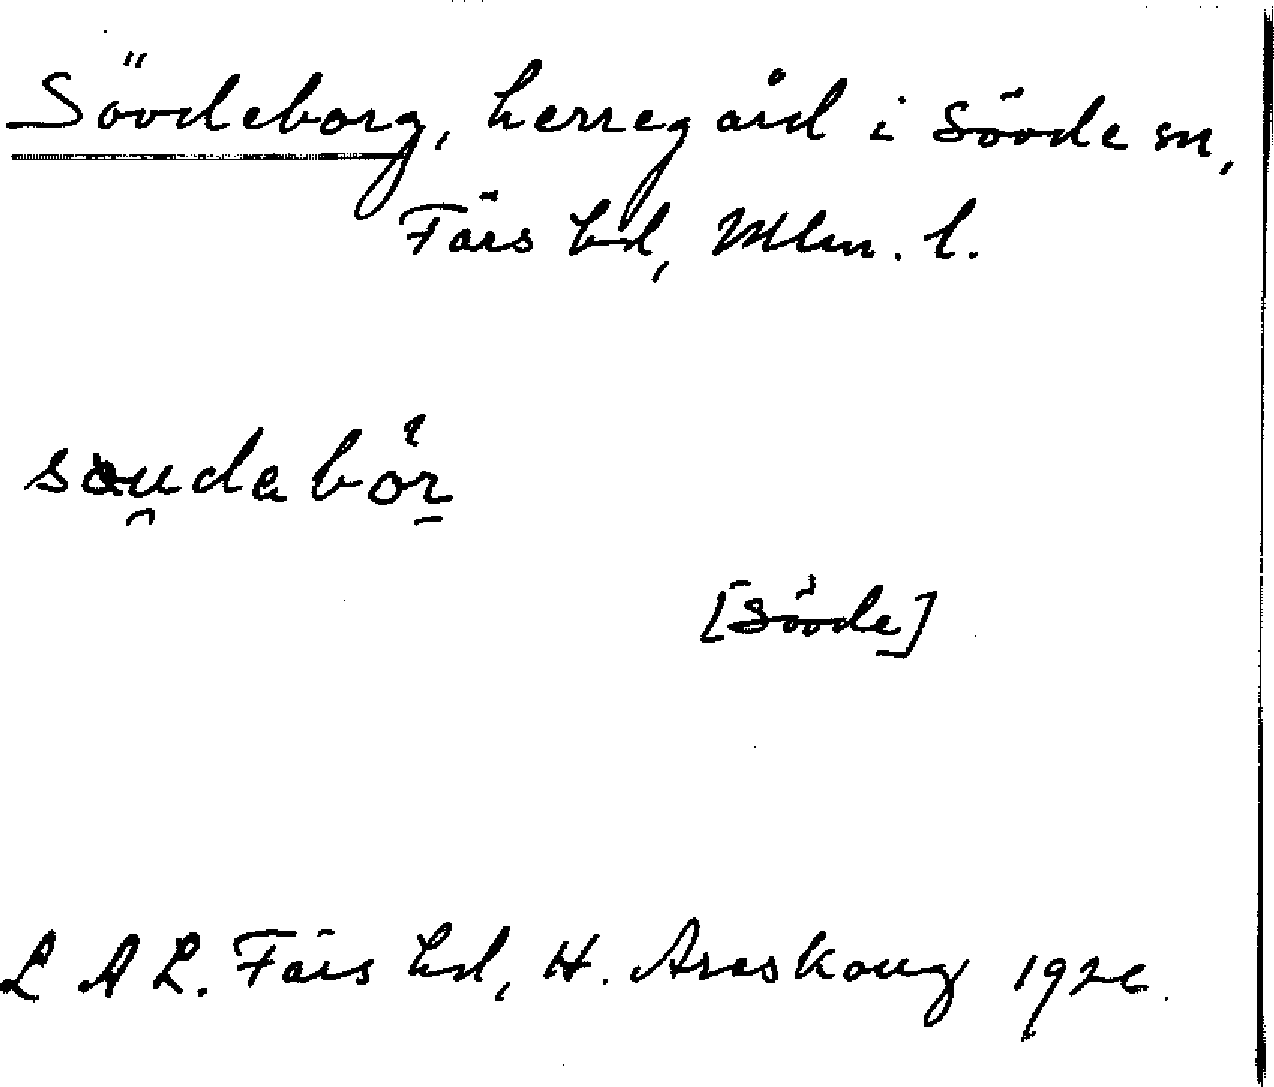 Sövdeborg, herregård i Sövde sn,
Färs hd, Mlm. l.
[Sövde]
L A L. Färs hd, H. Areskoug 1926.